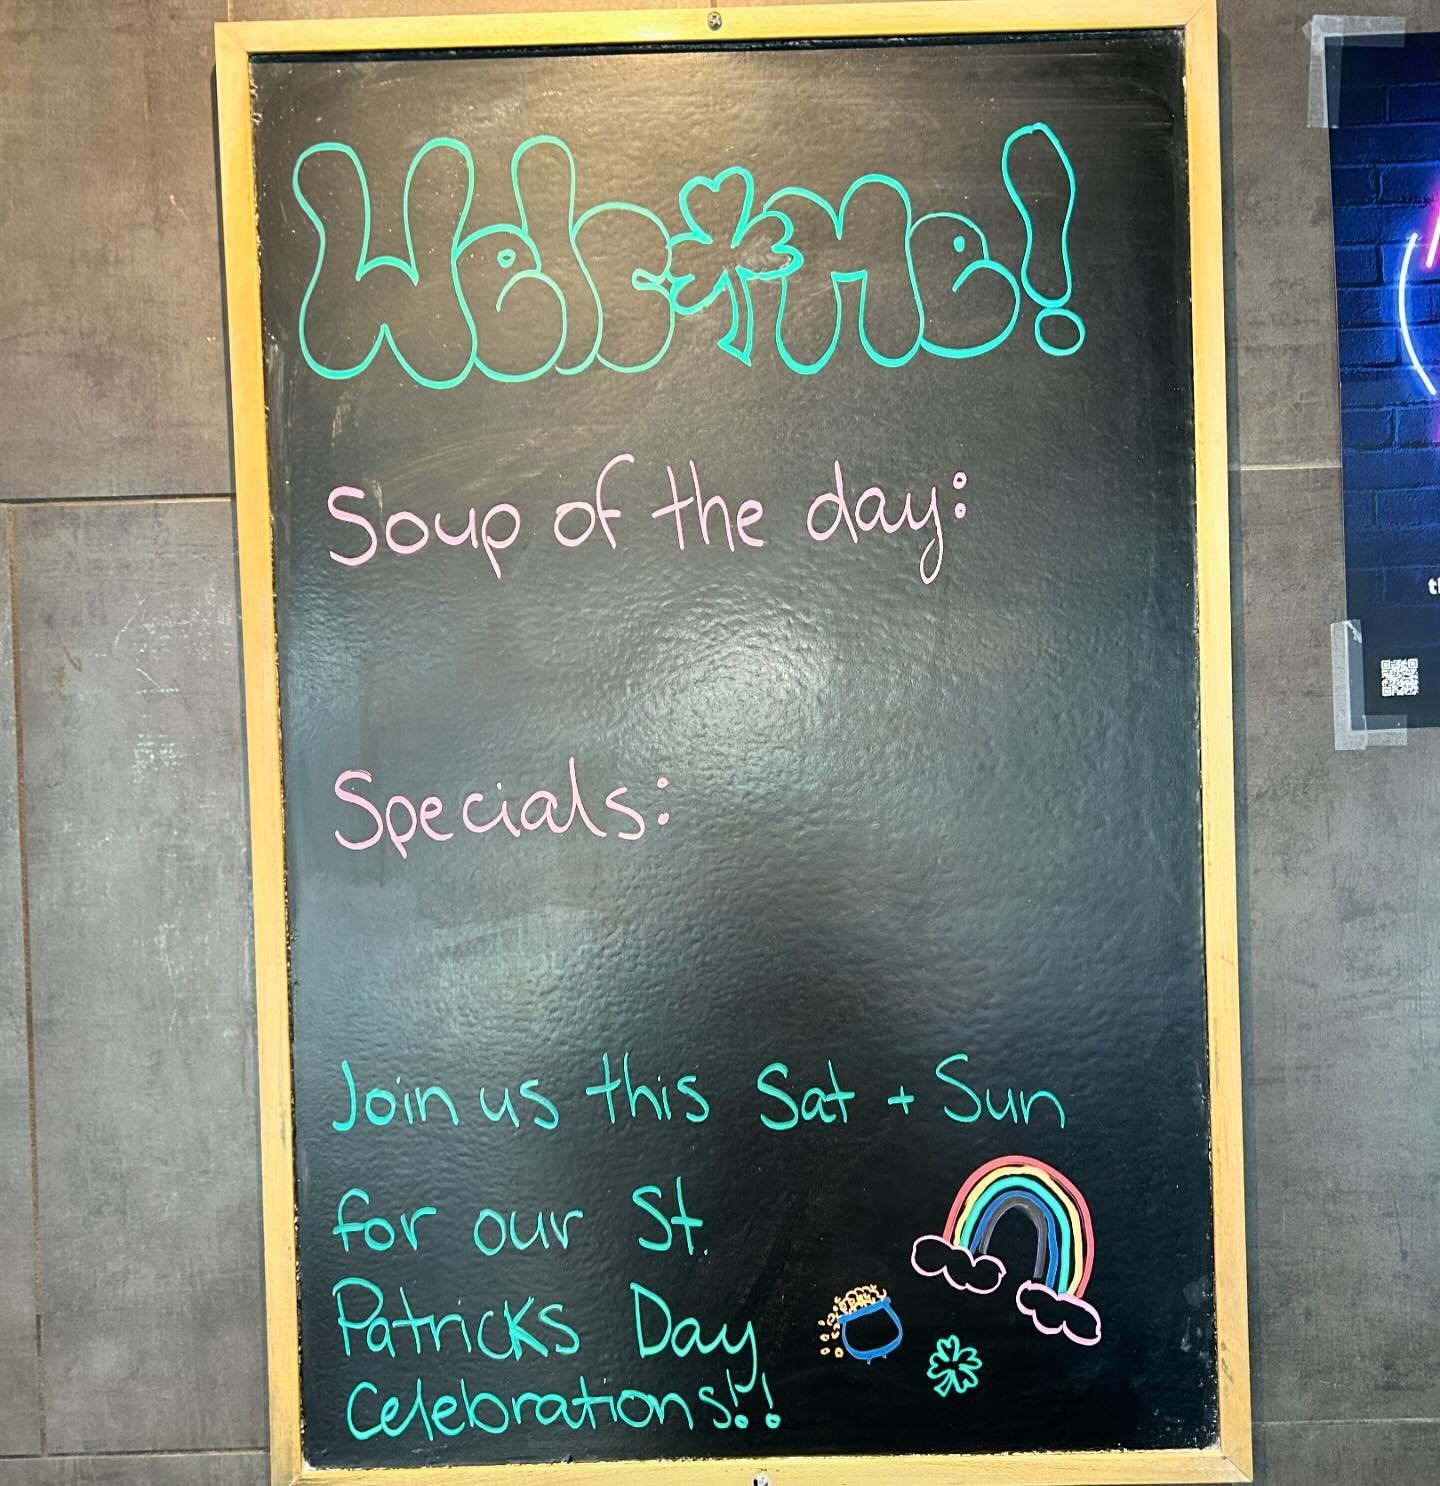 Welcome!
Soup of the day:
Specials:
Join us this Sat + Sun
for our St.
Patricks Day
Celebrations!!